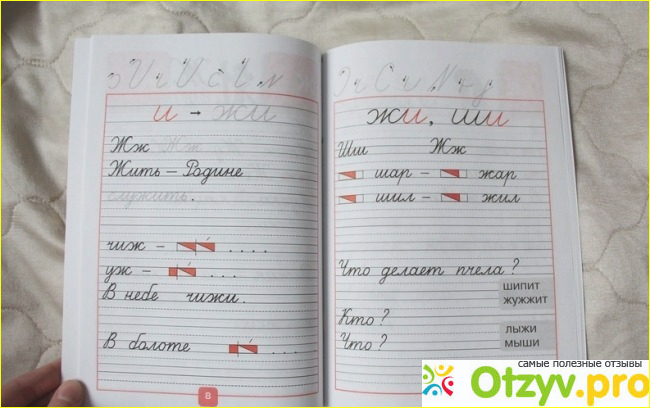 и → жи
Жж Жж
Жить – Родине
служить.
чиж – . . . .
уж – . . .
В небе чижи.
В болоте . . .
8
жи, ши
Шш Жж
шар – жар
шил – жил
Что делает пчела?
шипит
жужжит
Кто?
Что?
лыжи
мыши
самые полезные отзывы
Otzyv.pro